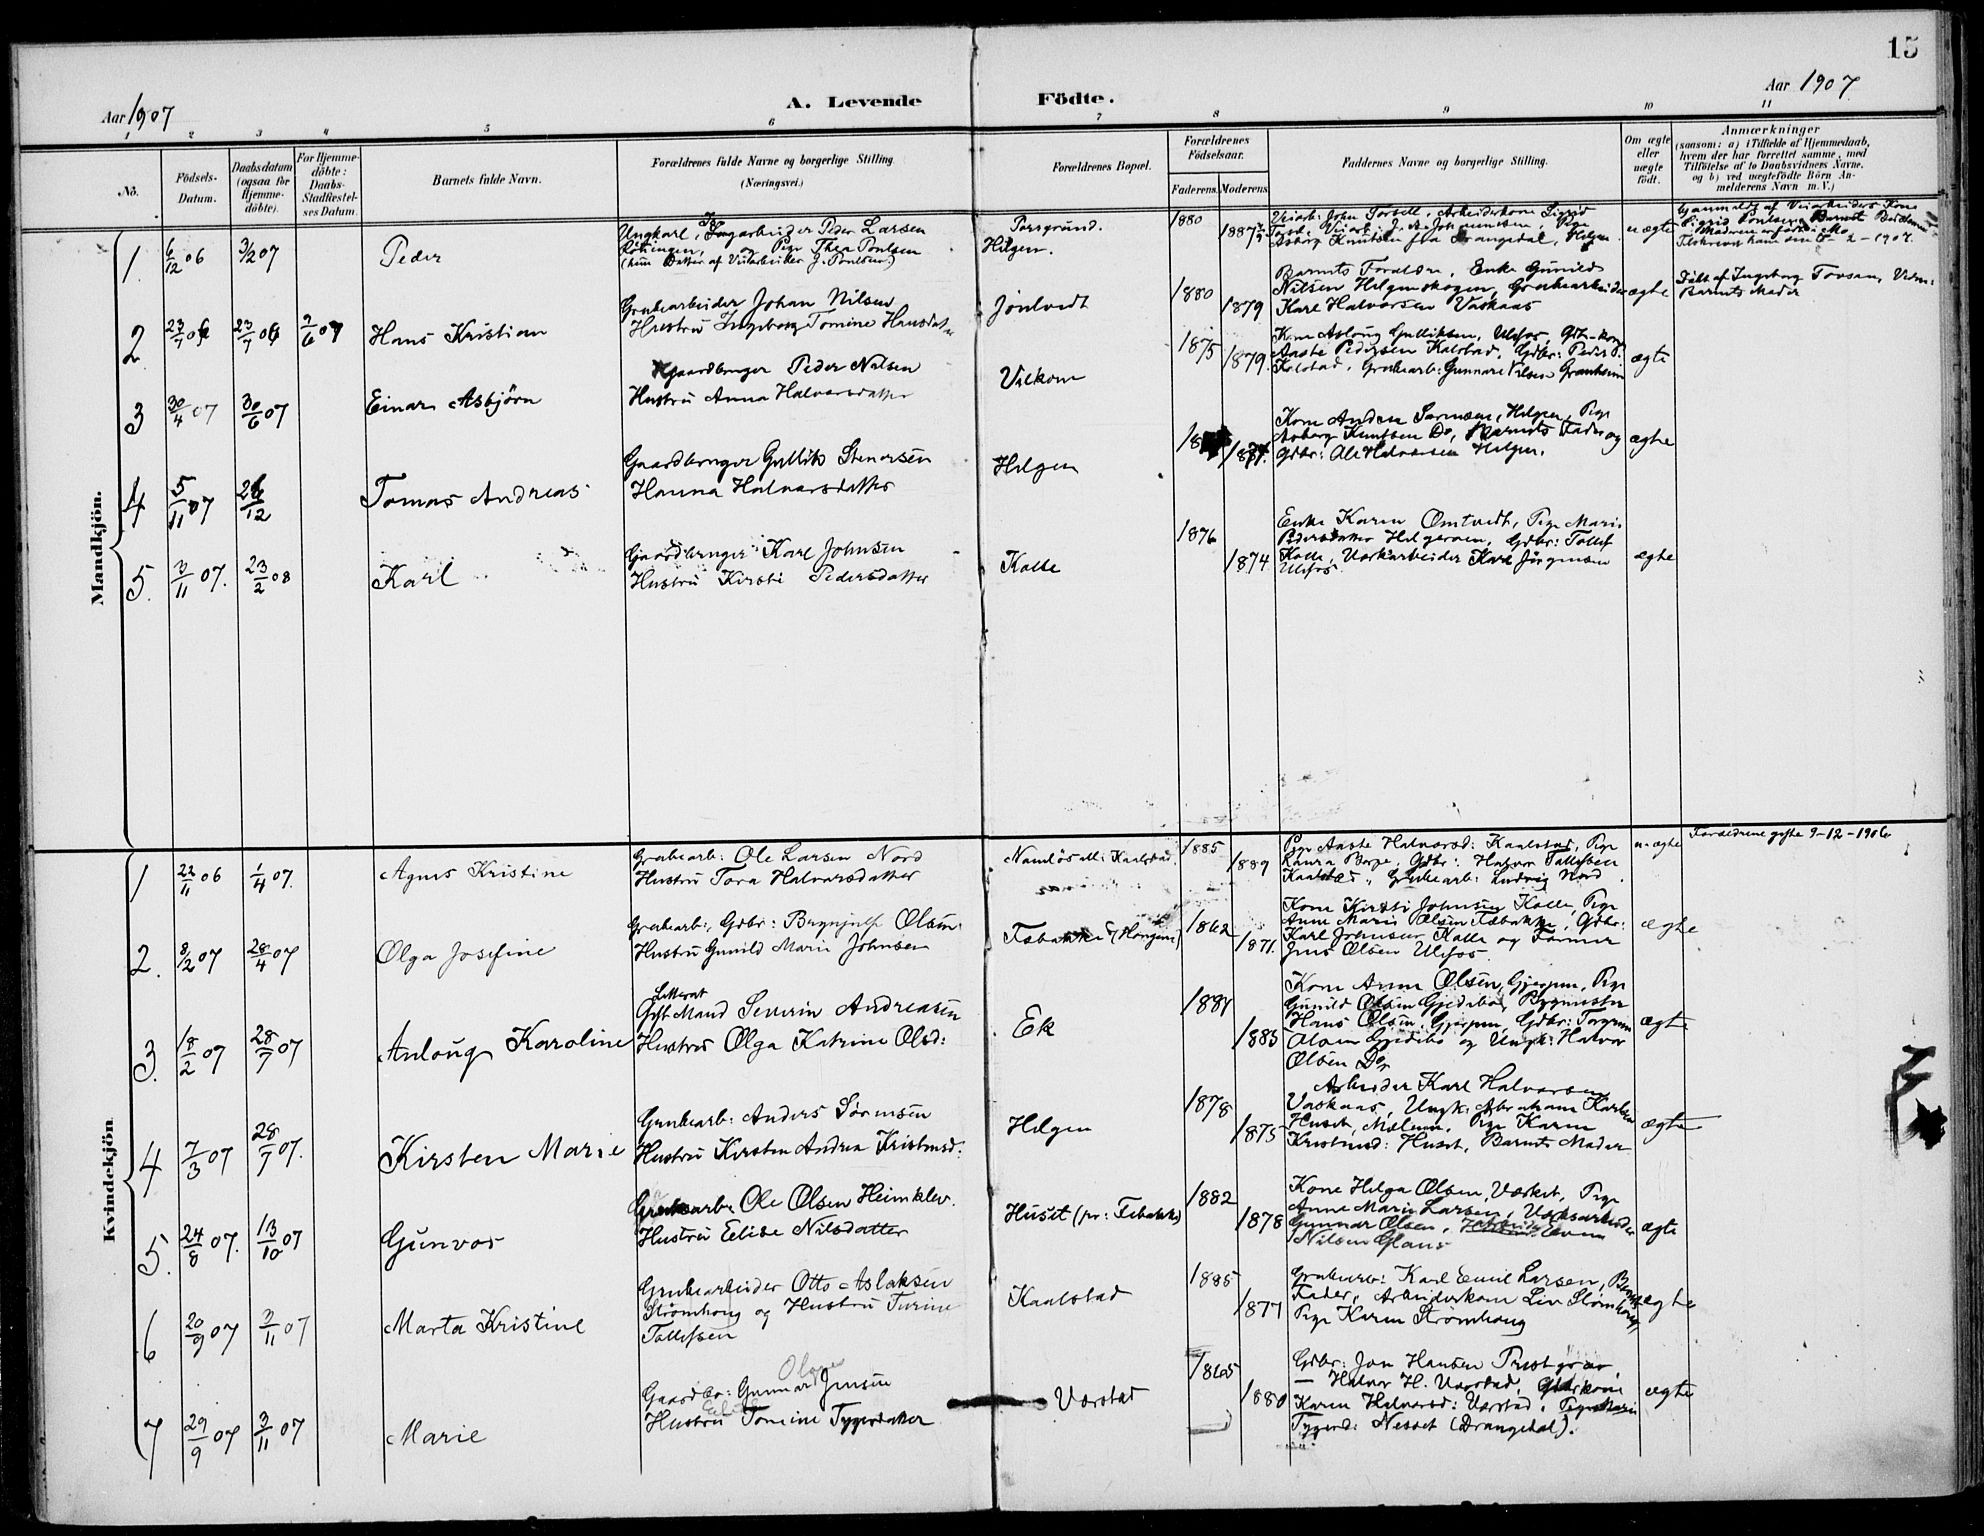 15
Aar 1907
A. Levende Födte.
Aar 1907
1 2 3 4 5 6 7 8 9 10 11
No.
Födsels-Datum.
Daabsdatum (ogsaa for Hjemme-döbte).
For Hjemme-döbte: Daabs-Stadfæstel-ses Datum.
Barnets fulde Navn.
Forældrenes fulde Navne og borgerlige Stilling.
(Næringsvei.)
Forældrenes Bopæl.
Forældrenes Födselsaar.
Faderens. Moderens.
Faddernes Navne og borgerlige Stilling.
Om ægte eller uægte födt.
Anmærkninger
(saasom: a) i Tilfælde af Hjemmedaab,
hvem der har forrettet samme, med
Tilföielse af to Daabsvidners Navne,
og b) ved uægtefödte Börn An-
melderens Navn m. V.)
Mandkjön.
1. 6/12 06 3/2 07 Peder
Ungkarl, Peder Larsen
og Pige Thea Poulsen
Porsgrund.
Helgen.
1880 1887
Asborg Knutsen fra Drangedal, Helgen
uægte
2 23/7 06 23/7 06 2/6 07 Hans Kristian
Grubearbeider Johan Nilsen
Hustru Ingeborg Tomine Hansdatter
Jönlvedt
1880 1879
Barnets Forældre, Enke Gunild
Nilsen Helgenskogen, Grubearbeider
Karl Halvorsen Vaskaas
ægte
Födt af Ingeborg Tovsen,
Barnets Moder
3 30/4 07 30/6 07 Einar Asbjörn
Gaardbruger Peder Nilsen
Hustru Anna Halvorsdatter
Vilkom
1875 1879.
Kone Aslaug Gulliksen, Ulefos,
Aaste Pedersen Kalstad, Gdbr: Peder P.
Kalstad, Grubearb: Gunnar Nilsen Granheim
ægte
4 5/11 07 26/12 Tomas Andreas
Gaardbruger Gullik Stenersen
Hanna Halvorsdatter
Helgen
Kone Andrea Sörensen, Helgen, Pige
Asborg Knutsen Do, Barnets Fader og
Gdbr: Ole Halvorsen Helgen.
ægte
5. 3/11 07. 23/2 08 Karl
Gaardbruger Karl Johnsen
Hustru Kirsti Pedersdatter
Kolle
1876 1874
Enke Karen Omtvedt, Pige Mari
Pedersdatter Helgeroen, Gdbr: Tollef
Kolle, Verkarbeider Karl Jörgensen
Ulefos.
ægte
Kvindekjön
1 22/11 06 1/4 07. Agnes Kristine
Grubearb: Ole Larsen Nord
Hustru Tora Halvorsdatter
Namlös all: Kaalstad.
1885 1889
Pige Aaste Halvorsd: Kaalstad, Pige
Laura Berge, Gdbr: Halvor Tollefsen
Kaalstad, Grubearb: Ludvig Nord.
uægte
Forældrene gifte 9-12-1906
2. 8/2 07 28/4 07 Olga Josefine
Grubearb:, Gdbr: Brynjulf Olsen
Hustru Gunild Marie Johnsen
1862 1871.
Kone Kirsti Johnsen Kolle, Pige
Anne Marie Olsen Tebakke, Gdbr:
Karl Johnsen Kolle og Former
Jens Olsen Ulefos.
ægte
3. 18/2 07 28/7 07 Anloug Karoline
Letterat
Gift Mand Severin Andreasen
Hustru Olga Katrine Olsd:
Ek
1881 1883
Kone Anne Olsen, Gjerpen, Pige
Gunild Olsen Gjedebo, Bygmester
Hans Olsen, Gjerpen, Gdbr: Torgrim
Olsen Gjedebo og Ungk: Halvor
Olsen Do,
ægte
4 7/3 07 28/7 07. Kirsten Marie
Grubearb: Anders Sörensen
Hustru Kirsten Andrea Kristensd:
Helgen
1878 1875
Arbeider Karl Halvorsen
Vaskaas, Ungk: Abraham Karlsen
Huset, Mælum, Pige Karen
Kristensd: Huset, Barnets Moder
ægte
5. 24/8 07. 13/10 07 Gunvor
Grubearb: Ole Olsen Heimklev.
Hustru Elise Nilsdatter
Huset (pr: Tebakke)
1882 1878
Kone Helga Olsen, Værket, Pige
Anne Marie Larsen, Værksarbeider
Gunnar Olsen, Even
Nilsen Glans
ægte
6 20/9 07 3/11 07 Marta Kristine
Grubearbeider Otto Aslaksen
Strömhoug og Hustru Turine
Tollefsen
Kaalstad
1885 1877
Grubearb: Karl Emil Larsen, Barnets
Fader, Arbeiderkone Liv Strömhoug,
Pige Karen Strömhoug
ægte
7 29/9 07 3/11 07 Marie
Gaardbr: Gunnar Jensen
Hustru Tomine Tygesdatter
Værstad
1865 1880
Gdbr: Jon Hansen
— Halvor H. Værstad, Gbkone
Karen Halvorsd: Værstad, Pige Marie
Tygesd: Nesset (Drangedal).
ægte